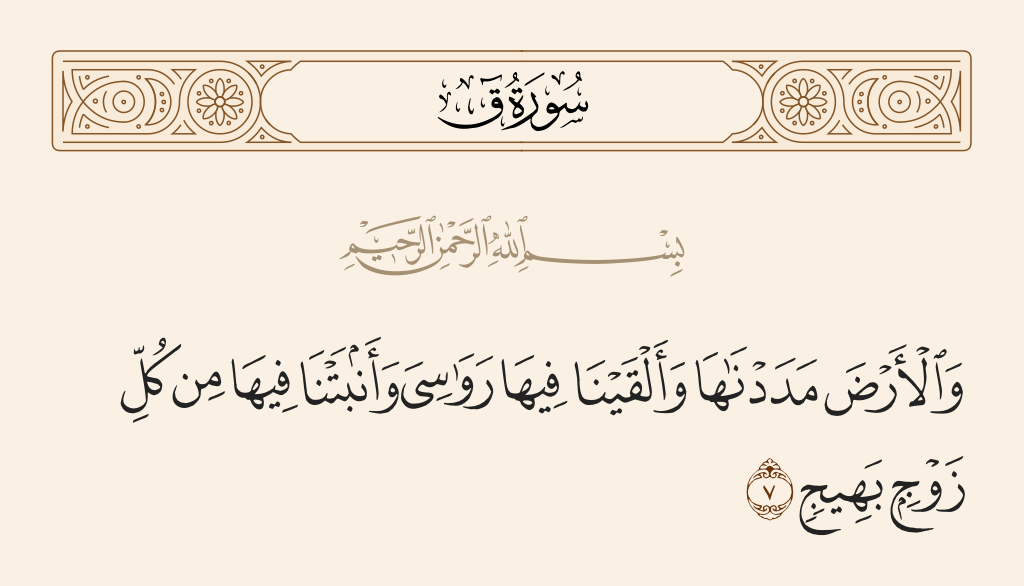 سُورَةُ قٓ
بِسْمِ ٱللَّهِ ٱلرَّحْمَٰنِ ٱلرَّحِيمِ
وَٱلْأَرْضَ مَدَدْنَٰهَا وَأَلْقَيْنَا فِيهَا رَوَٰسِىَ وَأَنۢبَتْنَا فِيهَا مِن كُلِّ
زَوْجٍۭ بَهِيجٍ ٧